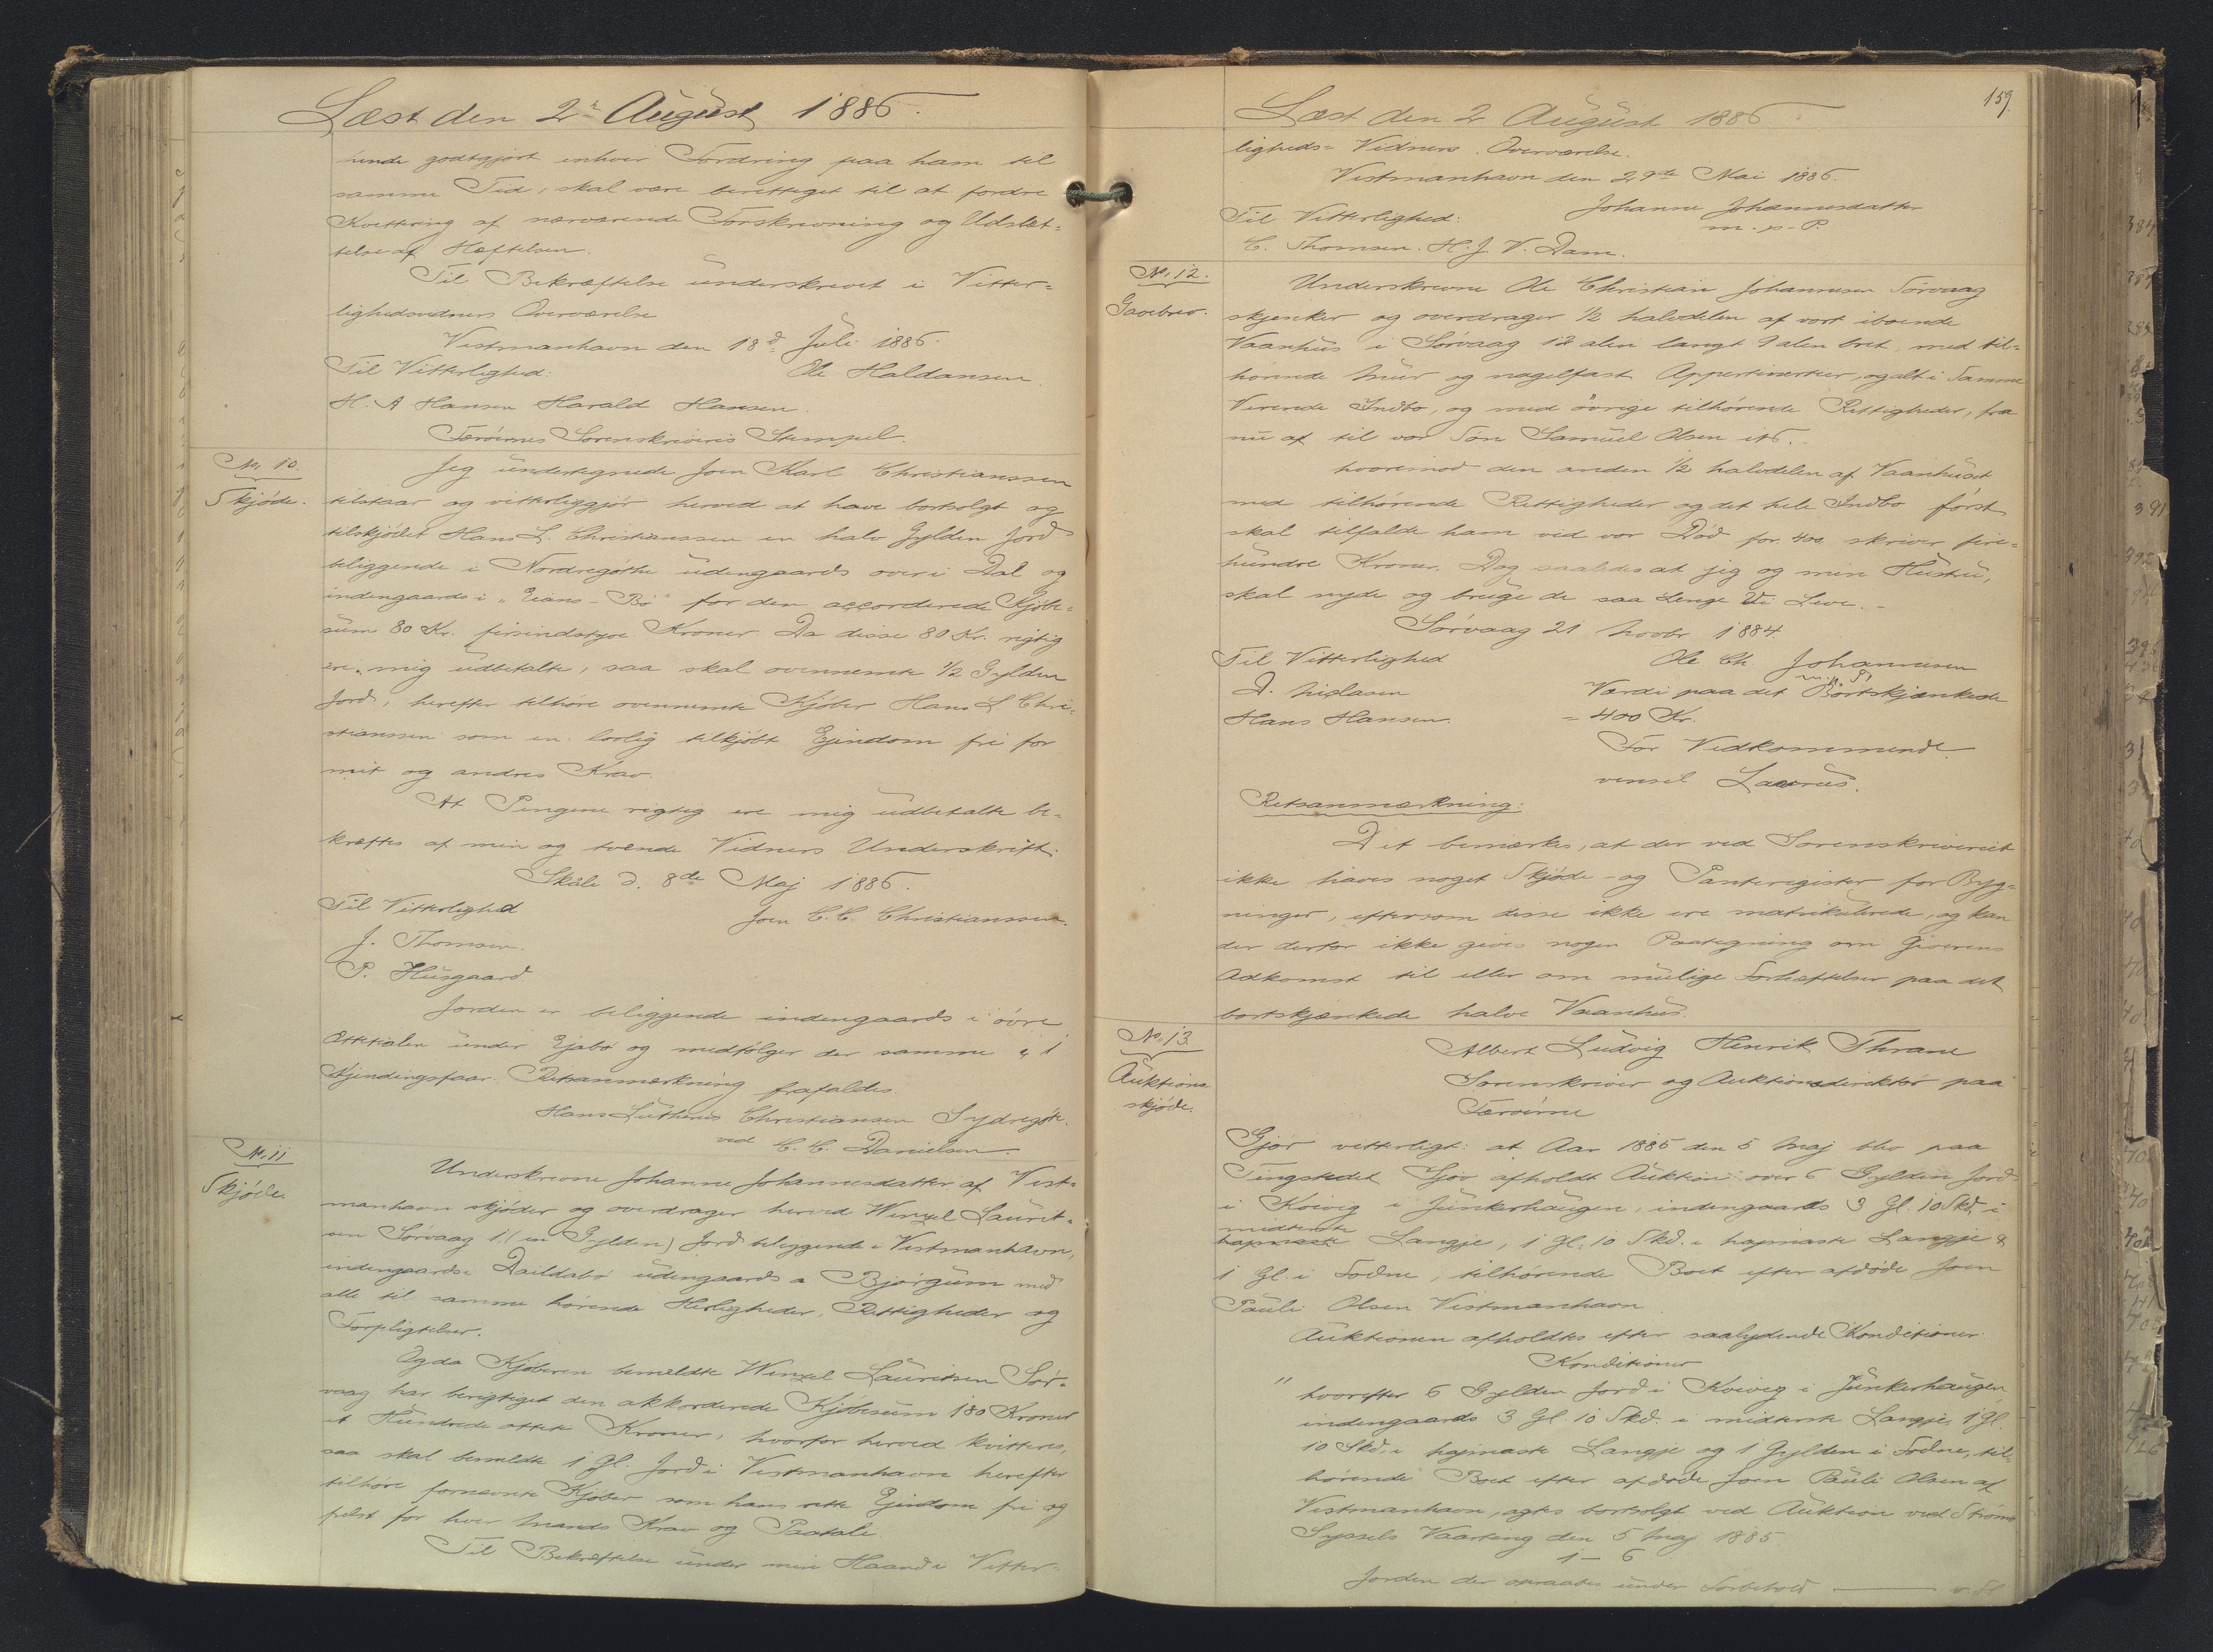 Læst den 2' August 1886.
hende godtgjort enhver Fordring paa ham til
samme Tid, skal være berettiget til at fordre
Kvittering af nærværende Forskrivning og Udslet=
telse af Hæftelsen.
Til Bekræftelse underskrevet i Vitter=
lighedsvidners Overværelse
Vestmanhavn den 18d Juli 1886.
Til Vitterlighed: Ole Haldansen.
H. A Hansen Harald Hansen.
Færøernes Sorenskriveris Stempel.
No. 10.
Skjöde.
Jeg undertegnede Joen Karl Christianssen
tilstaar og vitterliggjør herved at have bortsolgt og
tilskjödet Hans L. Christianssen en halv Gylden Jord
beliggende i Nordregöthe udengaards over i Dal og
indengaards i "Eians-Bö" for den accorderede Kjöbe=
sum 80 Kr. firsindstyve Kroner. Da disse 80 Kr. rigtig
ere mig udbetalte, saa skal ovennemte 1/2 Gylden
Jord, herefter tilhøre ovennemte Kjöber Hans L. Chri=
stianssen som en lovlig tilkjöbt Ejendom fri for
mit og andres Krav.
At Pengene rigtig ere mig udbetalte be=
kræftes af min og tvende Vidners Underskrift.
Skåle d. 8de Maj 1886.
Til Vitterlighed Joen C. C. Christianssen.
J. Thomsen.
P. Husgaard.
Jorden er beliggende indengaards i övre
Ættetalen under Ejabö og medfölger der samme 1
Kjendingsfaar. Retsanmærkning frafaldes.
Hans Lutherus Christiansen Sydregöte.
ved C. C. Danielsen.
No. 11
Skjöde.
Underskrevne Johanne Johannesdatter af Vest=
manhavn skjöder og overdrager herved Winzel Laurit=
sen Sörvaag 1 (en Gylden) Jord beliggende i Vestmanhavn,
indengaards i Daildabö udengaards a Bjørgum med
alle til samme hørende Herligheder, Rettigheder og
Forpligtelser.
Og da Kjöberen bemeldte Winzel Lauritsen Sör=
vaag har berigtiget den akkorderede Kjöbesum 180 Kroner
et Hundrede ottete Kroner, hvorfor herved kvitteres,
saa skal bemeldte 1 Gl. Jord i Vestmanhavn herefter
tilhöre fornævnte Kjöber som hans rette Ejendom fri og
frelst for hver Mands Krav og Paatale.
Til Bekræftelse under min Haand i Vitter=
159.
Læst den 2 August 1886.
ligheds= Vidners Overværelse.
Vestmanhavn den 29de Mai 1886.
Til Vitterlighed: Johanne Johannesdatter
m. p. P.
C. Thomsen. H. J. V. Dam.
No. 12.
Gavebrev.
Underskrevne Ole Christian Johannesen Sörvaag
skjenker og overdrager 1/2 halvdelen af vort iboende
Vaanhus i Sörvaag 12 alen langt 9 alen bret, med til=
hørende Mur og nagelfast Appertinentier, og alt i Samme
Verende Indbo, og med övrige tilhørende Rettigheder, fra
nu af til vor Sön Samuel Olsen its.
hvoremod den anden 1/2 halvdelen af Vaanhuset
med tilhørende Rettigheder og det hele Indbo först
skal tilfalde ham ved vor Död for 400 skriver fire=
hundre Kroner. Dog saaledes at jeg og min Hustru,
skal nyde og bruge de saa Lenge Vi Leve.
Sörvaag 21 Novbr 1884
Til Vitterlighed Ole Ch. Johannesen
m. p. P.
D. Niclasen Værdi paa det Bortskjænkede
Hans Hansen. = 400 Kr.
For Vedkommende
vensel Laurus.
Retsanmærkning:
Det bemærkes, at der ved Sorenskriveriet
ikke haves noget Skjöde- og Panteregister for Byg=
ninger, eftersom disse ikke ere matrikulerede, og kan
der derfor ikke gives nogen Paategning om Giverens
Adkomst til eller om mulige Forhæftelser paa det
bortskjænkede halve Vaanhus.
No. 13
Auktions
skjöde.
Albert Ludvig Henrik Thrane
Sorenskriver og Auktionsdirektör paa
Færöerne
Gjör vitterligt: at Aar 1885 den 5 Maj blev paa
Tingstedet Gjov afholdt Auktion over 6 Gylden Jord
i Kvivig i Junkerhaugen, indengaards 3 Gl. 10 Skd. i
midterste
Langje, 1 Gl. 10 Skd. i hajmaste Langje &
1 Gl. i Fodne, tilhørende Boet efter afdöde Joen
Pauli Olsen Vestmanhavn
Auktionen afholdtes efter saalydende Konditioner.
Konditioner
" hvorefter 6 Gylden Jord i Kvivig i Junkerhaugen
indengaards 3 Gl. 10 Skd. i midterste Langje, 1 Gl.
10 Skd. i hajmaste Langje og 1 Gylden i Fodne, til=
hörende Boet efter afdöde Joen Pauli Olsen af
Vestmanhavn, agtes bortsolgt ved Auktion ved Strömö
Syssels Vaarting den 5 Maj 1885.
1-6
Jorden der opraabes under Forbehold